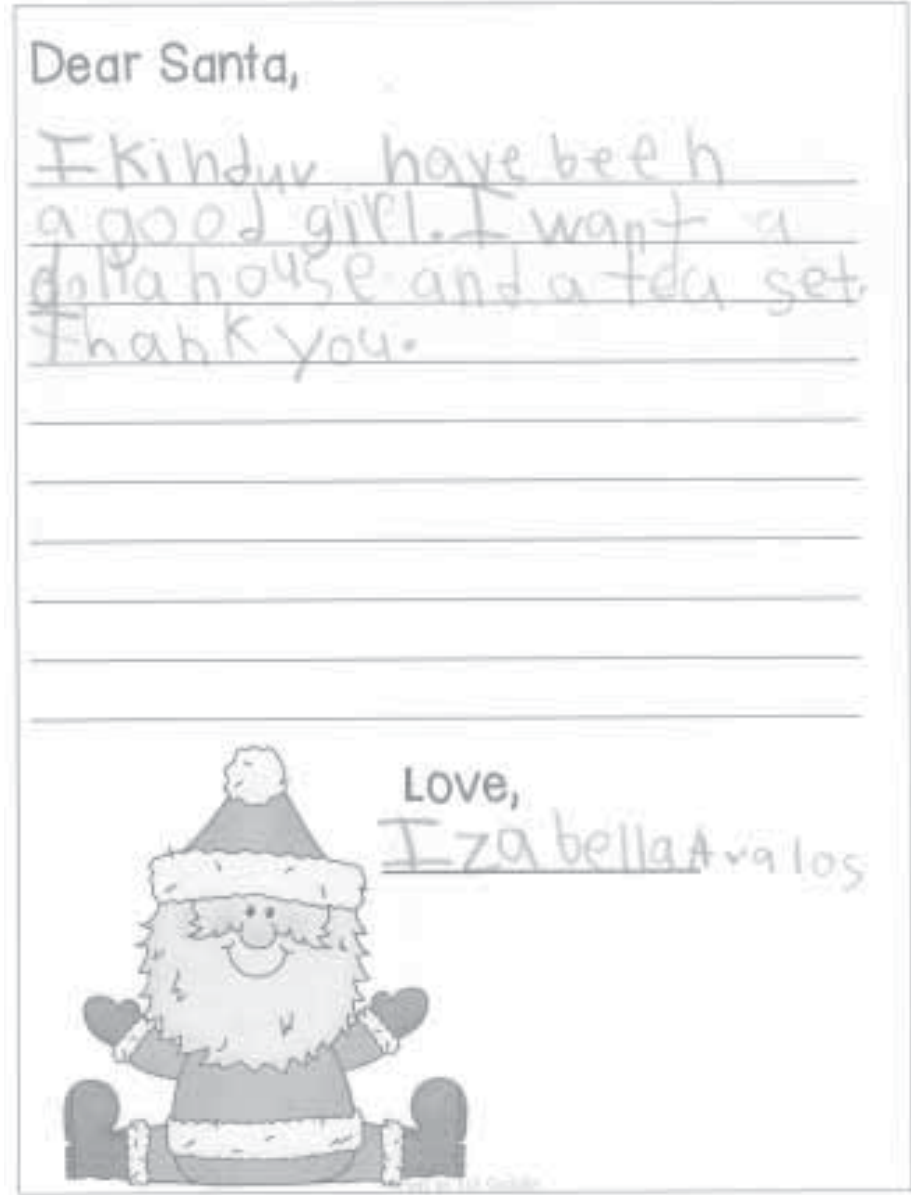 Dear Santa,
I kinduv have been
a good girl. I want a
dolla house and a tea set.
Thank you.
Love,
Izabella Avalos